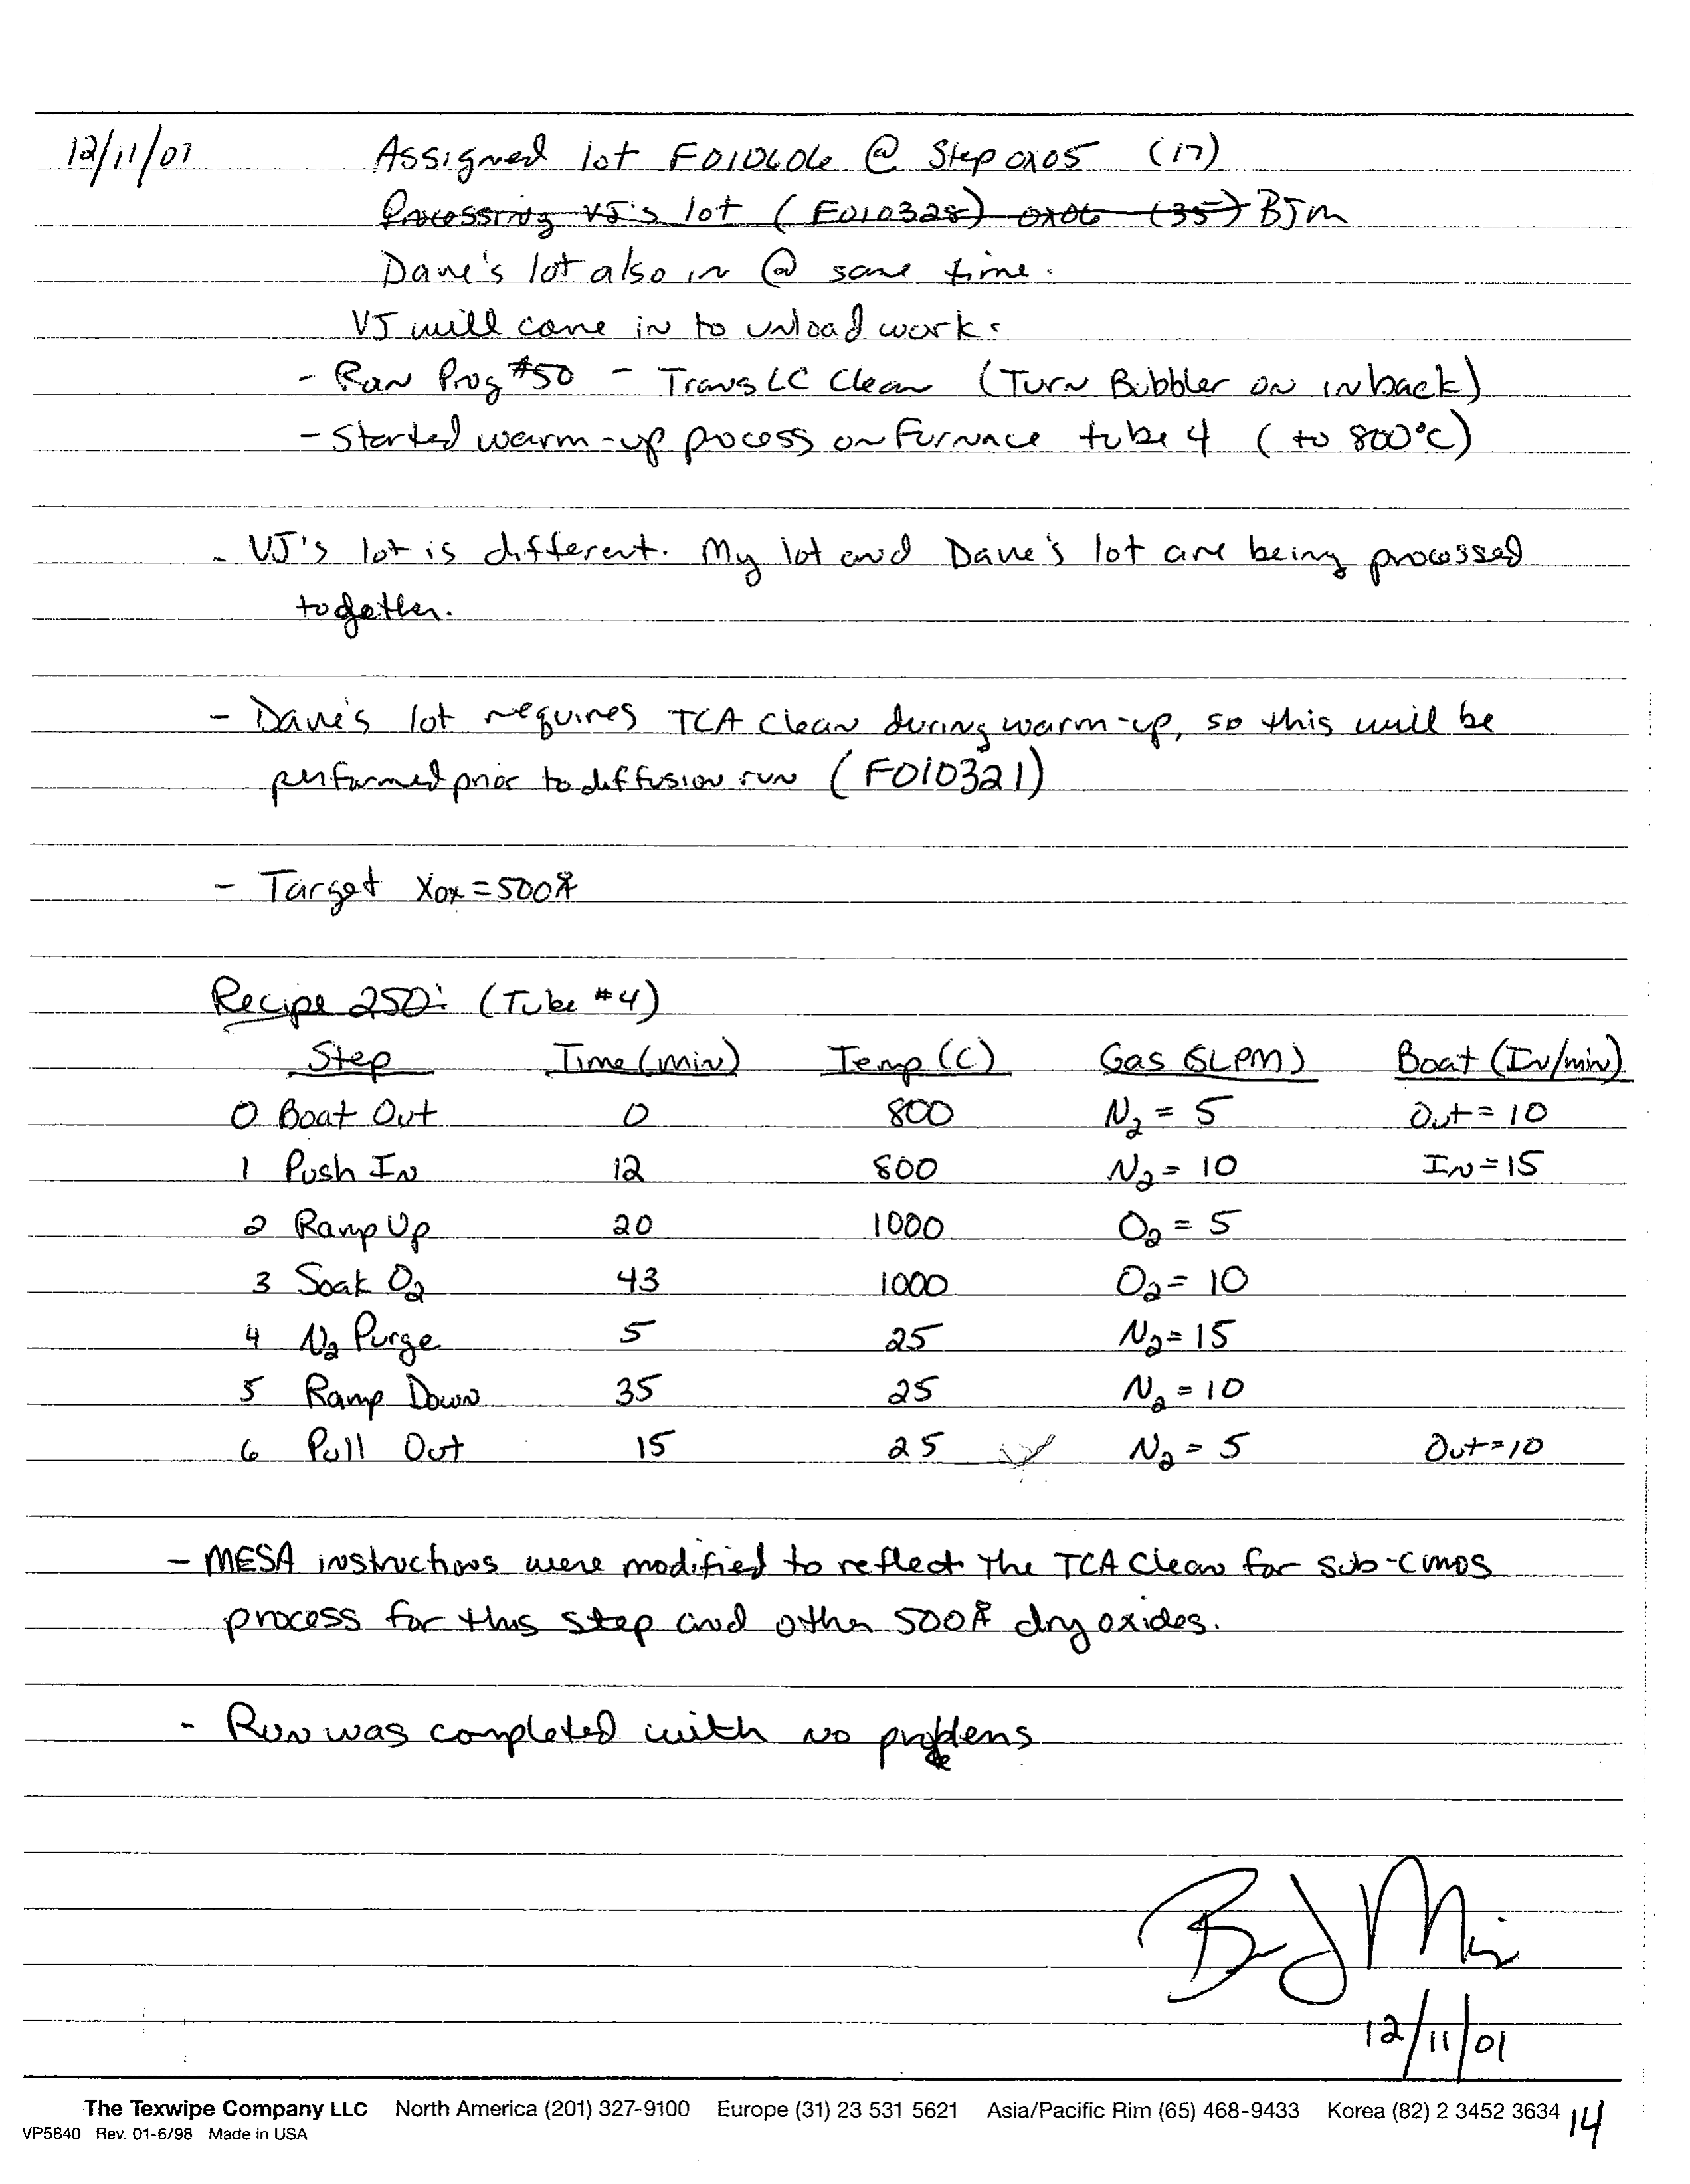 12/11/01 Assigned lot F010606 @ Step 0x05 (17)
Processing VJ's lot (F010328) 0x06 (35) BJM
Dave's lot also in @ same time.
VJ will come in to unload work.
- Ran Prog #50 - Trans LC Clean (Turn Bubbler on in back)
- Started warm-up process on Furnace tube 4 (to 800°C)
- VJ's lot is different. My lot and Dave's lot are being processed
together.
- Dave's lot requires TCA Clean during warm-up, so this will be
performed prior to diffusion run (F010321)
- Target Xox = 500Å
Recipe 250: (Tube #4)
Step Time (min) Temp (C) Gas (SLPM) Boat (In/min)
0 Boat Out 0 800 N2 = 5 Out = 10
1 Push In 12 800 N2 = 10 In = 15
2 Ramp Up 20 1000 O2 = 5
3 Soak O2 43 1000 O2 = 10
4 N2 Purge 5 25 N2 = 15
5 Ramp Down 35 25 N2 = 10
6 Pull Out 15 25 N2 = 5 Out = 10
- MESA instructions were modified to reflect the TCA Clean for sub-CMOS
process for this step and other 500Å dry oxides.
- Run was completed with no problems
12/11/01
The Texwipe Company LLC North America (201) 327-9100 Europe (31) 23 531 5621 Asia/Pacific Rim (65) 468-9433 Korea (82) 2 3452 3634 14
VP5840 Rev. 01-6/98 Made in USA